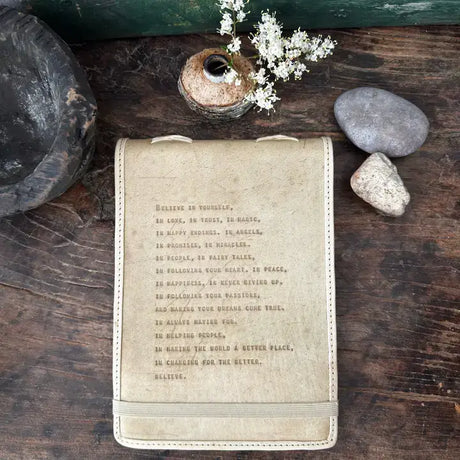 BELIEVE IN YOURSELF,
IN LOVE, IN TRUST, IN MAGIC,
IN HAPPY ENDINGS. IN ANGELS,
IN PROMISES, IN MIRACLES.
IN PEOPLE, IN FAIRY TALES,
IN FOLLOWING YOUR HEART, IN PEACE,
IN HAPPINESS, IN NEVER GIVING UP,
IN FOLLOWING YOUR PASSIONS,
AND MAKING YOUR DREAMS COME TRUE.
IN ALWAYS HAVING FUN.
IN HELPING PEOPLE,
IN MAKING THE WORLD A BETTER PLACE,
IN CHANGING FOR THE BETTER.
BELIEVE.